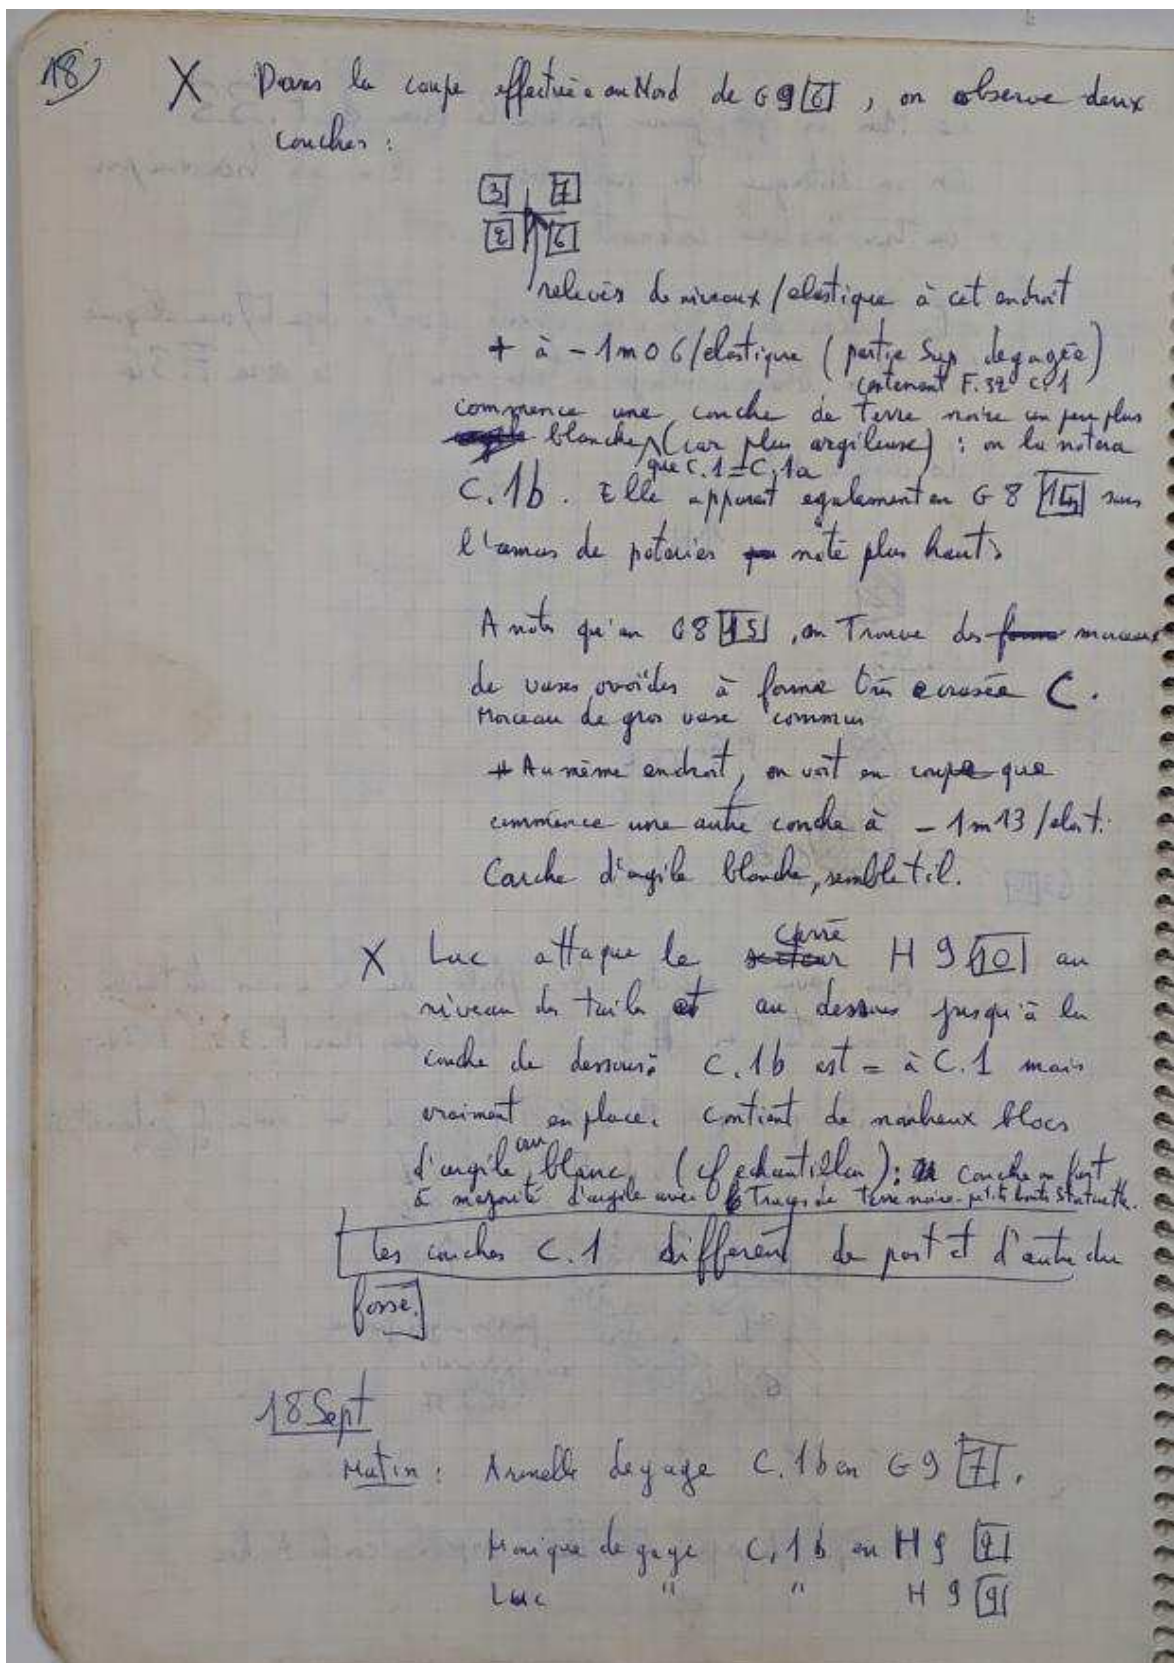 18
X Dans la coupe effectuée au Nord de G9 6, on observe deux
couches :
3 7
2 6
relevés de niveaux / élastique à cet endroit
+ à - 1m06 / elastique (partie Sup dégagée)
contenant F.32 C.1
commence une couche de terre noire un peu plus
blanche (car plus argileuse) : on la notera
que C.1 = C.1a
C.1b. Elle apparait egalement en G8 15 sous
l'amas de poteries noté plus haut.
A noter qu'en G8 15, on Trouve des forme morceaux
de vases ovoïdes à forme très ecrasée C.
Morceau de gros vase commun
+ Au même endroit, on voit en coupe que
commence une autre couche à - 1m13 / elast.
Couche d'argile blanche, semble til.
carré
X Luc attaque le secteur H9 10 au
niveau des tuiles et au dessous jusqu'à la
couche de dessous. C.1b est = à C.1 mais
vraiment en place. Contient de nombreux blocs
d'argile blanc (cf echantillon) : couche en fait
à majorité d'argile avec Traces de Terre noire - petits bouts Statuette.
Les couches C.1 different de part et d'autre du
fossé.
18 Sept
Matin : Armelle degage C.1b en G9 7.
Monique degage C.1b en H9 2
Luc " " H9 9